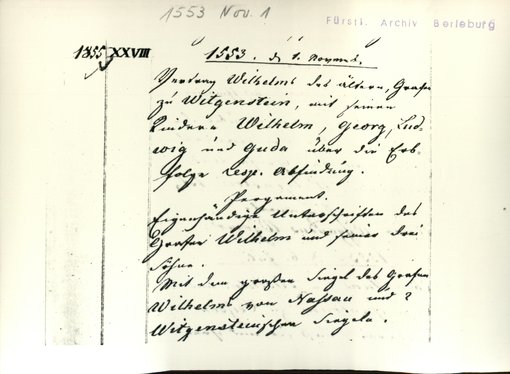 1553 Nov. 1
Fürstl. Archiv Berleburg
1855 XXVIII
1553. d. 1. Novemb.
Vertrag Wilhelms des ältern, Grafen
zu Witgenstein, mit seinen
Kindern Wilhelm, Georg, Lud-
wig und Guda über die Erb-
folge resp. Abfindung.
Pergament.
Eigenhändige Unterschriften des
Grafen Wilhelm und seiner drei
Söhne.
Mit dem großen Siegel des Grafen
Wilhelm von Nassau und 2
Witgensteinischen Siegeln.